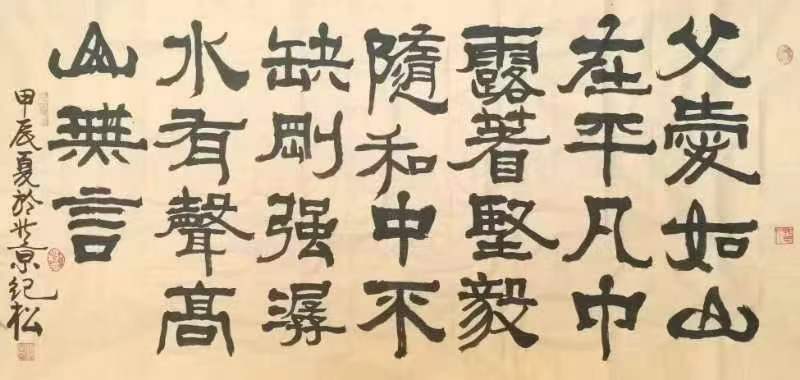 父愛如山
在平凡中
露著堅毅
隨和中不
缺剛强潺
水有聲高
山無言
甲辰夏於北京纪松